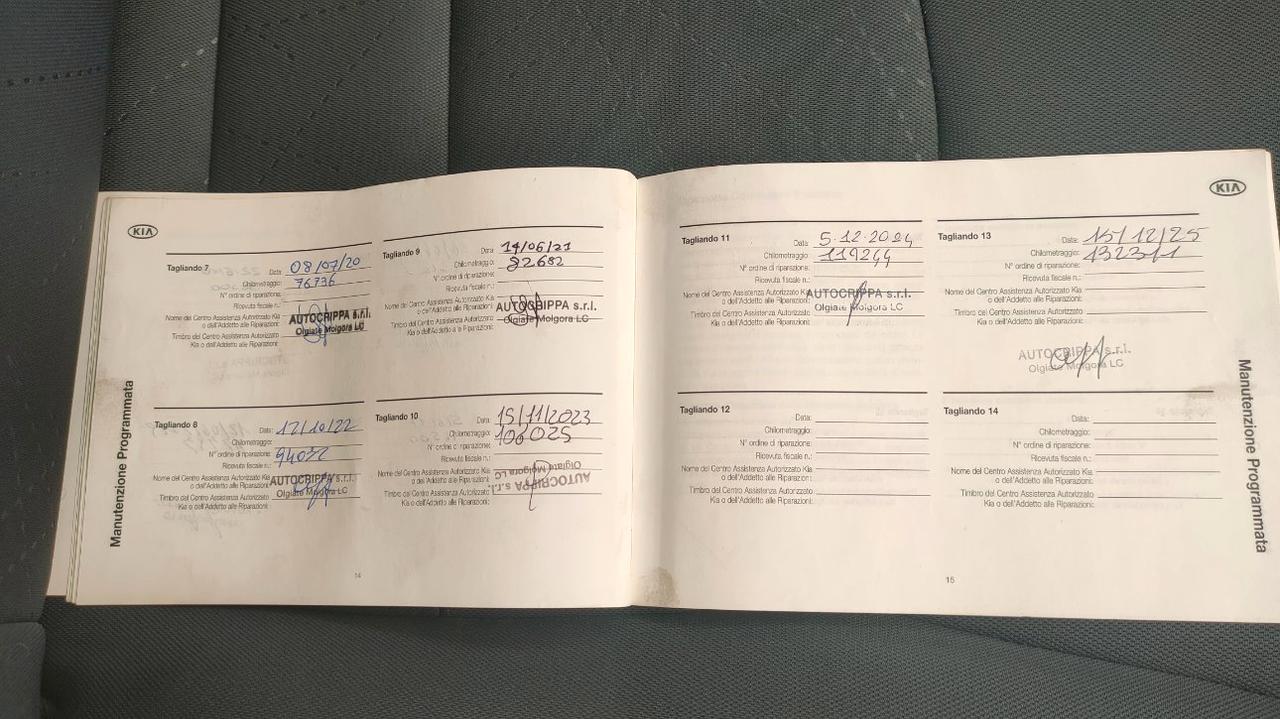 KIA
Tagliando 7
Data: 08/07/20
Chilometraggio: 76736
N° ordine di riparazione:
Ricevuta fiscale n.:
Nome del Centro Assistenza Autorizzato Kia
o dell'Addetto alle Riparazioni:
AUTOCRIPPA s.r.l.
Olgiate Molgora LC
Timbro del Centro Assistenza Autorizzato
Kia o dell'Addetto alle Riparazioni:
Tagliando 8
Data: 12/10/22
Chilometraggio:
N° ordine di riparazione: 94032
Ricevuta fiscale n.:
Nome del Centro Assistenza Autorizzato Kia
o dell'Addetto alle Riparazioni:
AUTOCRIPPA s.r.l.
Olgiate Molgora LC
Timbro del Centro Assistenza Autorizzato
Kia o dell'Addetto alle Riparazioni:
Tagliando 9
Data: 14/06/21
Chilometraggio: 82682
N° ordine di riparazione:
Ricevuta fiscale n.:
Nome del Centro Assistenza Autorizzato Kia
o dell'Addetto alle Riparazioni:
AUTOCRIPPA s.r.l.
Olgiate Molgora LC
Timbro del Centro Assistenza Autorizzato
Kia o dell'Addetto alle Riparazioni:
Tagliando 10
Data: 15/11/2023
Chilometraggio: 106025
N° ordine di riparazione:
Ricevuta fiscale n.:
Nome del Centro Assistenza Autorizzato Kia
o dell'Addetto alle Riparazioni:
AUTOCRIPPA s.r.l.
Olgiate Molgora LC
Timbro del Centro Assistenza Autorizzato
Kia o dell'Addetto alle Riparazioni:
Manutenzione Programmata
14
KIA
Tagliando 11
Data: 5.12.2024
Chilometraggio: 119244
N° ordine di riparazione:
Ricevuta fiscale n.:
Nome del Centro Assistenza Autorizzato Kia
o dell'Addetto alle Riparazioni:
AUTOCRIPPA s.r.l.
Olgiate Molgora LC
Timbro del Centro Assistenza Autorizzato
Kia o dell'Addetto alle Riparazioni:
Tagliando 12
Data:
Chilometraggio:
N° ordine di riparazione:
Ricevuta fiscale n.:
Nome del Centro Assistenza Autorizzato Kia
o dell'Addetto alle Riparazioni:
Timbro del Centro Assistenza Autorizzato
Kia o dell'Addetto alle Riparazioni:
Tagliando 13
Data: 15/12/25
Chilometraggio: 132311
N° ordine di riparazione:
Ricevuta fiscale n.:
Nome del Centro Assistenza Autorizzato Kia
o dell'Addetto alle Riparazioni:
Timbro del Centro Assistenza Autorizzato
Kia o dell'Addetto alle Riparazioni:
AUTOCRIPPA s.r.l.
Olgiate Molgora LC
Tagliando 14
Data:
Chilometraggio:
N° ordine di riparazione:
Ricevuta fiscale n.:
Nome del Centro Assistenza Autorizzato Kia
o dell'Addetto alle Riparazioni:
Timbro del Centro Assistenza Autorizzato
Kia o dell'Addetto alle Riparazioni:
Manutenzione Programmata
15